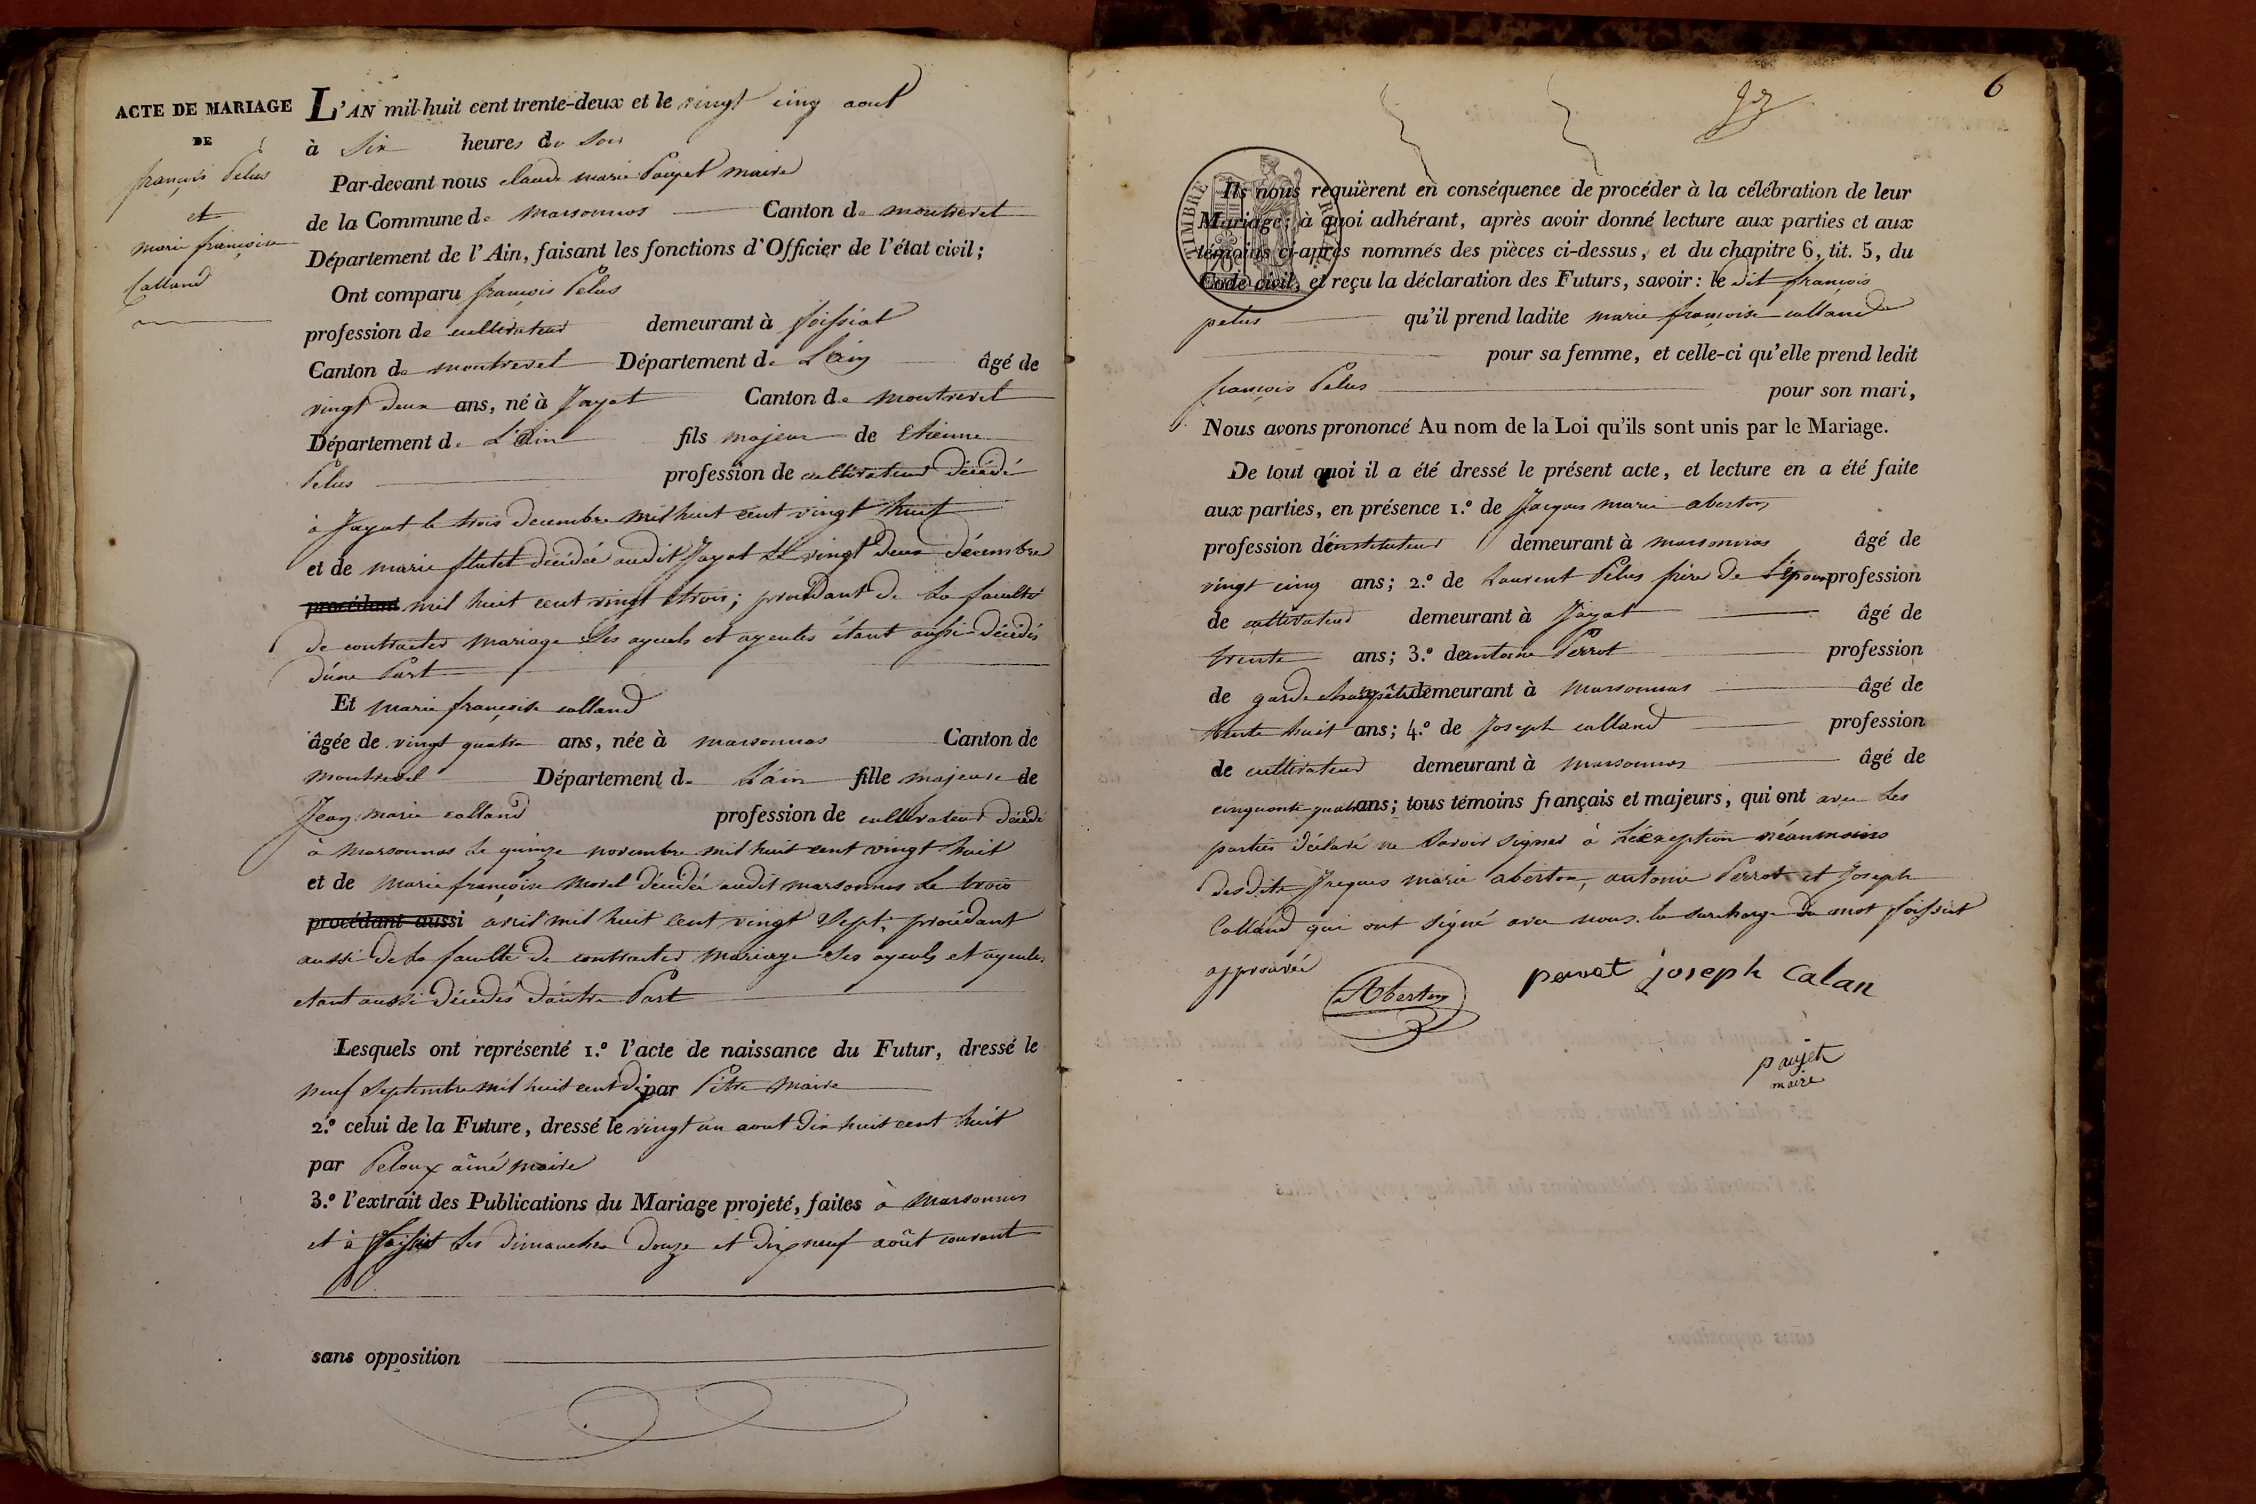 ACTE DE MARIAGE
DE
françois Pelus
et
marie françoise
Calland
L'AN mil huit cent trente-deux et le vingt cinq aout
à Six heures du Soir
Par-devant nous claude marie Paujet maire
de la Commune de marsonnas Canton de montrevel
Département de l'Ain, faisant les fonctions d'Officier de l'état civil;
Ont comparu françois Pelus
profession de cultivateur demeurant à foissiat
Canton de montrevel Département de L'ain âgé de
vingt deux ans, né à Jayat Canton de montrevel
Département de L'ain fils majeur de Etienne
Pelus profession de cultivateur décédé
à Jayat le trois decembre mil huit cent vingt huit
et de marie flutet décédée audit Jayat Le vingt deux décembre
procédant mil huit cent vingt trois; procédant de La faculté
de contracter mariage Ses ayeuls et ayeules étant aussi décédés
d'une Part
Et marie françoise calland
âgée de vingt quatre ans, née à marsonnas Canton de
montrevel Département de L'ain fille majeure de
Jean marie calland profession de cultivateur décédé
à marsonnas Le quinze novembre mil huit cent vingt huit
et de marie françoise morel décédée audit marsonnas Le trois
procédant aussi avril mil huit cent vingt Sept; procédant
aussi de La faculté de contracter mariage Ses ayeuls et ayeules
etant aussi décédés d'autre Part
Lesquels ont représenté 1.º l'acte de naissance du Futur, dressé le
neuf Septembre mil huit cent dix par Pitre maire
2.º celui de la Future, dressé le vingt un aout dix huit cent huit
par Peloux aîné maire
3.º l'extrait des Publications du Mariage projeté, faites à marsonnas
et à foissiat Les dimanches douze et dix neuf août courant
sans opposition
6
TIMBRE ROYAL
70c
Ils nous requièrent en conséquence de procéder à la célébration de leur
Mariage; à quoi adhérant, après avoir donné lecture aux parties et aux
témoins ci-après nommés des pièces ci-dessus, et du chapitre 6, tit. 5, du
Code civil, et reçu la déclaration des Futurs, savoir: le dit françois
pelus qu'il prend ladite marie françoise calland
pour sa femme, et celle-ci qu'elle prend ledit
françois Pelus pour son mari,
Nous avons prononcé Au nom de la Loi qu'ils sont unis par le Mariage.
De tout quoi il a été dressé le présent acte, et lecture en a été faite
aux parties, en présence 1.º de Jacques marie aberton
profession d'instituteur demeurant à marsonnas âgé de
vingt cinq ans; 2.º de Laurent Pelus frère de L'époux profession
de cultivateur demeurant à Jayat âgé de
trente ans; 3.º de antoine Perrot profession
de garde champêtre demeurant à marsonnas âgé de
trente huit ans; 4.º de Joseph calland profession
de cultivateur demeurant à marsonnas âgé de
cinquante quatre ans; tous témoins français et majeurs, qui ont avec Les
parties déclaré ne Savoir signer à L'éxception néanmoins
desdits Jacques marie aberton, antoine Perrot et Joseph
Calland qui ont signé avec nous. la surcharge du mot foissiat
approuvée
Aberton
perrat joseph Calan
paujet
maire